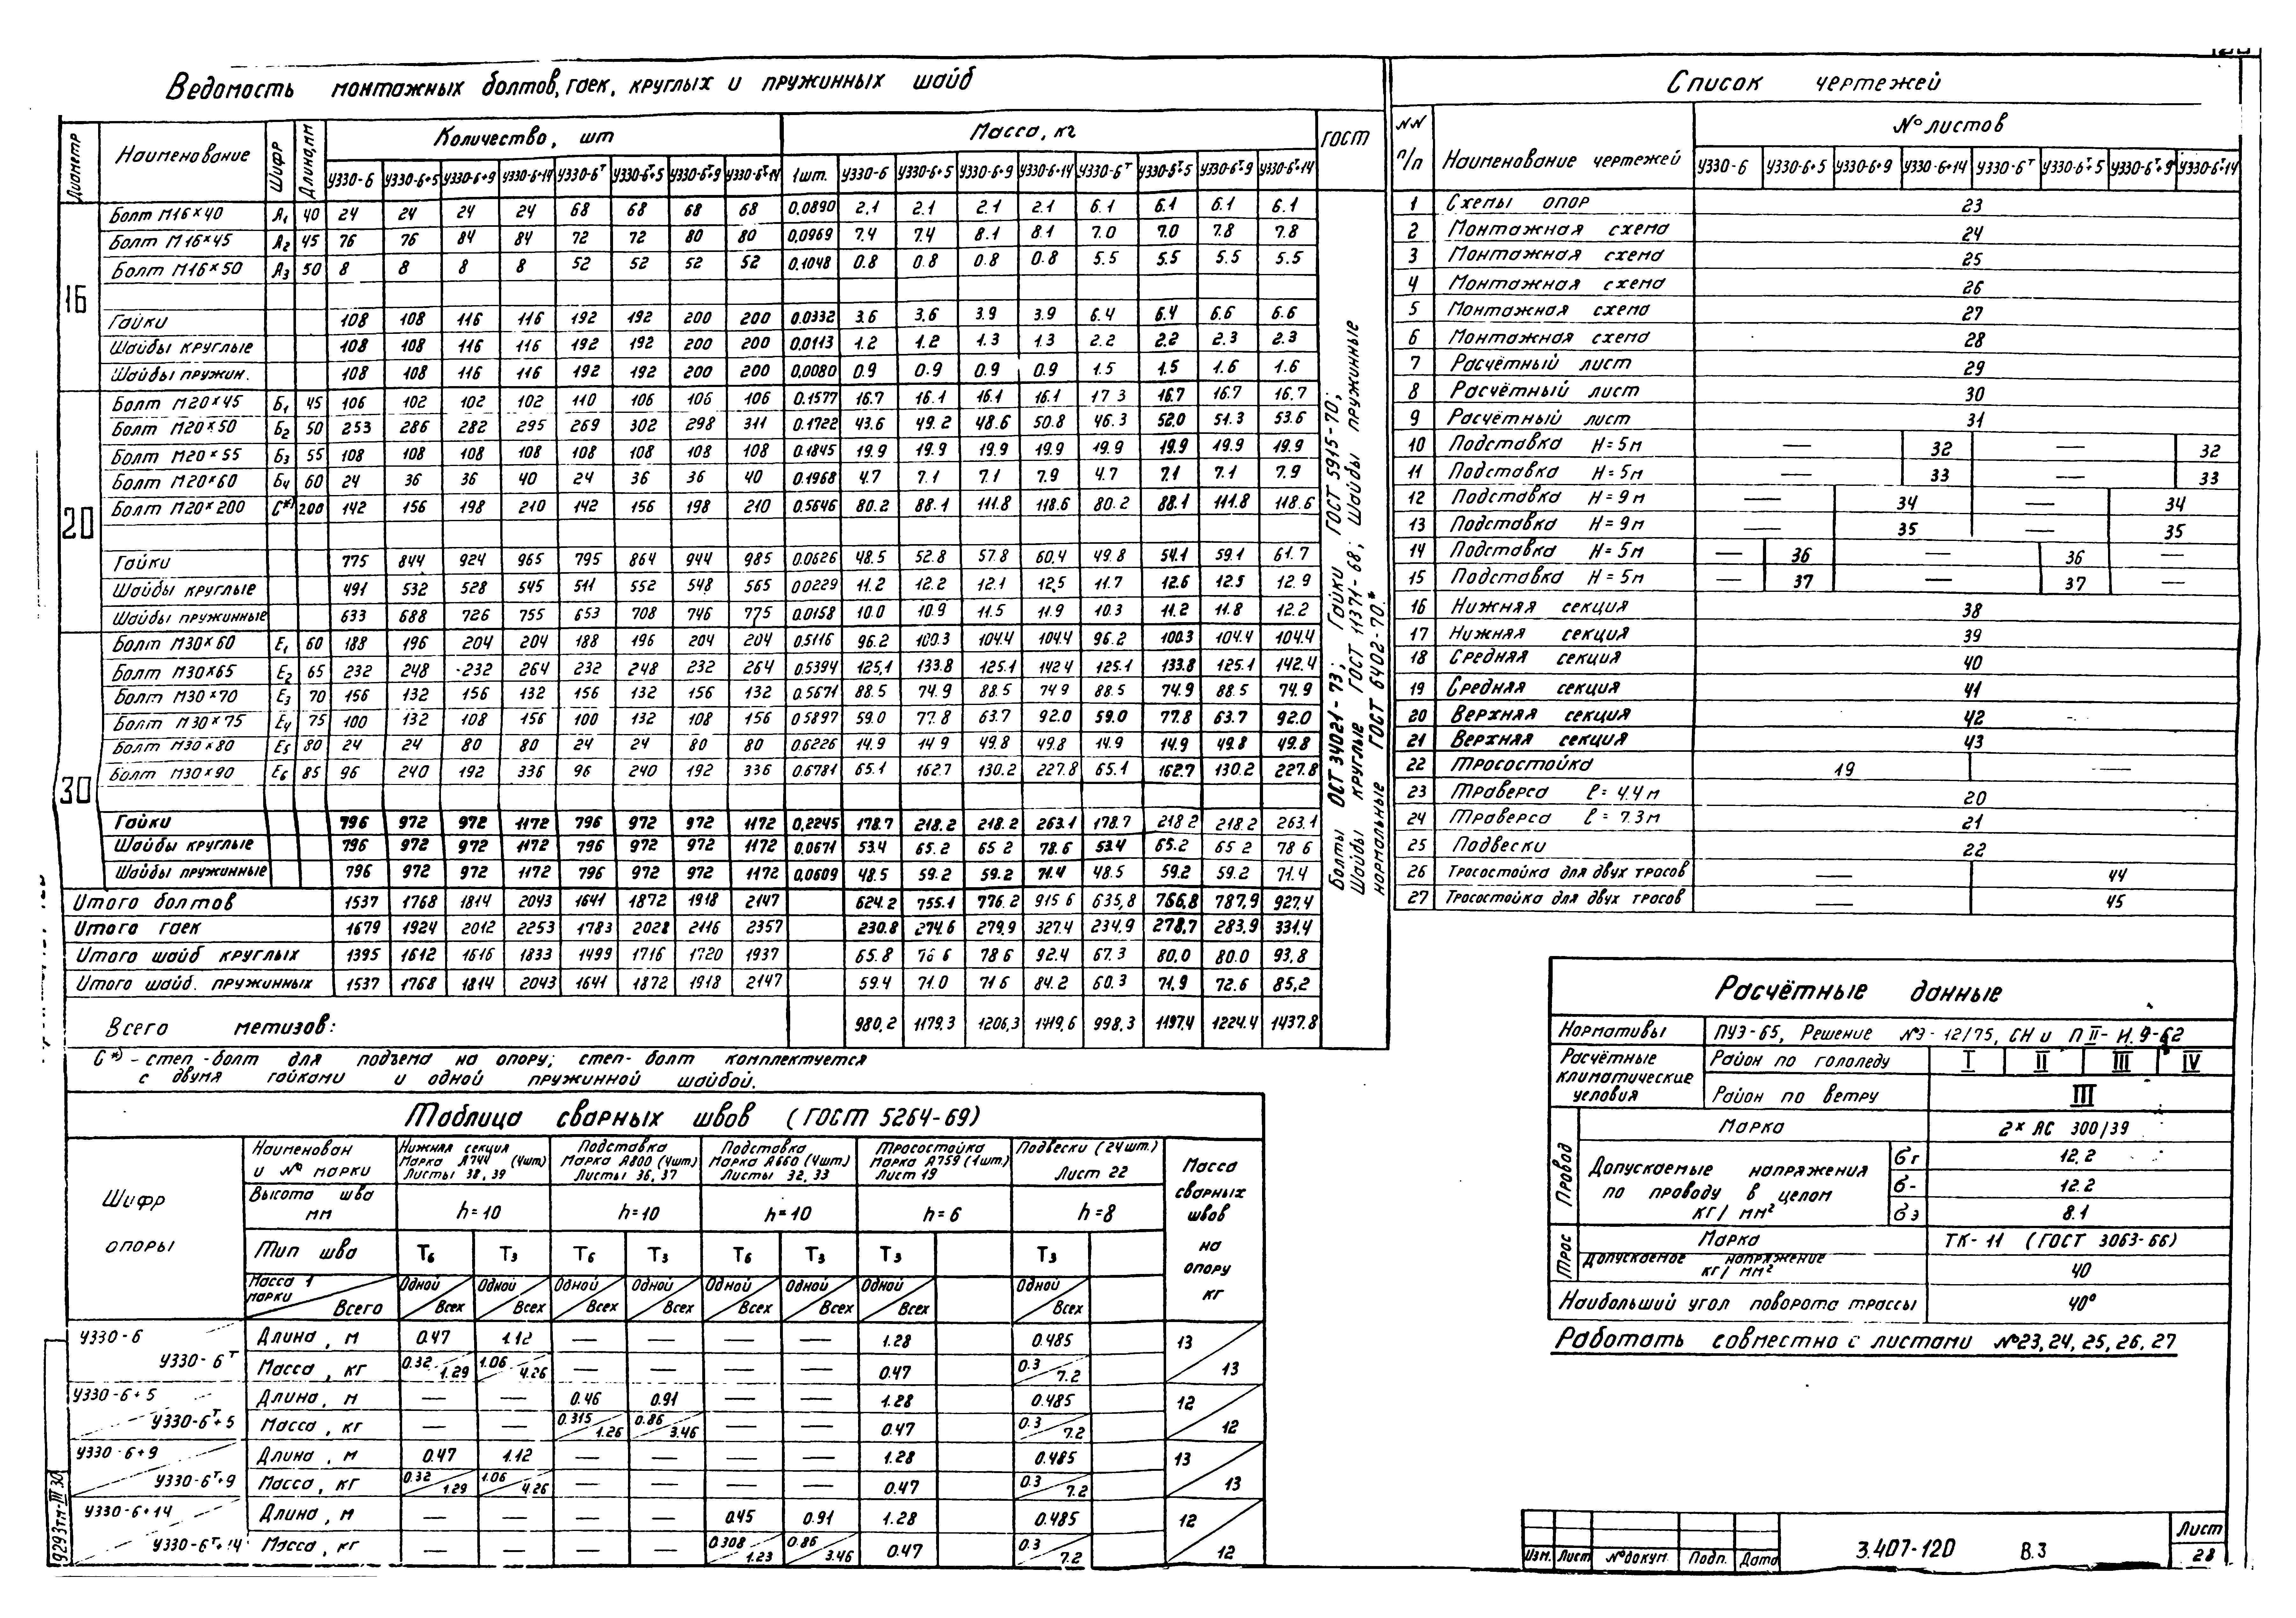 Ведомость монтажных болтов, гаек, круглых и пружинных шайб
Диаметр Наименование Шифр Длина, мм Количество, шт Масса, кг ГОСТ
У330-6 У330-6+5 У330-6+9 У330-6+14 У330-6Т У330-6Т+5 У330-6Т+9 У330-6Т+14 1шт. У330-6 У330-6+5 У330-6+9 У330-6+14 У330-6Т У330-6Т+5 У330-6Т+9 У330-6Т+14
16
Болт М16×40 А1 40 24 24 24 24 68 68 68 68 0,0890 2.1 2.1 2.1 2.1 6.1 6.1 6.1 6.1
Болт М16×45 А2 45 76 76 84 84 72 72 80 80 0,0969 7.4 7.4 8.1 8.1 7.0 7.0 7.8 7.8
Болт М16×50 А3 50 8 8 8 8 52 52 52 52 0.1048 0.8 0.8 0.8 0.8 5.5 5.5 5.5 5.5
Гайки 108 108 116 116 192 192 200 200 0.0332 3.6 3,6 3.9 3.9 6.4 6.4 6.6 6.6
Шайбы круглые 108 108 116 116 192 192 200 200 0,0113 1.2 1.2 1.3 1.3 2.2 2.2 2.3 2.3
Шайбы пружин. 108 108 116 116 192 192 200 200 0,0080 0.9 0.9 0.9 0.9 1.5 1.5 1.6 1.6
20
Болт М20×45 Б1 45 106 102 102 102 110 106 106 106 0.1577 16.7 16.1 16.1 16.1 17 3 16.7 16.7 16.7
Болт М20×50 Б2 50 253 286 282 295 269 302 298 311 0.1722 43.6 49.2 48.6 50.8 46.3 52.0 51.3 53.6
Болт М20×55 Б3 55 108 108 108 108 108 108 108 108 0.1845 19.9 19.9 19.9 19.9 19.9 19.9 19.9 19.9
Болт М20×60 Б4 60 24 36 36 40 24 36 36 40 0.1968 4.7 7.1 7.1 7.9 4.7 7.1 7.1 7.9
Болт М20×200 С*) 200 142 156 198 210 142 156 198 210 0.5646 80.2 88.1 111.8 118.6 80.2 88.1 111.8 118.6
Гайки 775 844 924 965 795 864 944 985 0.0626 48.5 52.8 57.8 60,4 49.8 54.1 59.1 61.7
Шайбы круглые 491 532 528 545 511 552 548 565 0.0229 11.2 12.2 12.1 12,5 11.7 12.6 12.5 12.9
Шайбы пружинные 633 688 726 755 653 708 746 775 0.0158 10.0 10.9 11.5 11.9 10.3 11.2 11.8 12.2
30
Болт М30×60 Е1 60 188 196 204 204 188 196 204 204 0.5116 96.2 100.3 104.4 104.4 96.2 100.3 104.4 104.4
Болт М30×65 Е2 65 232 248 232 264 232 248 232 264 0.5394 125,1 133.8 125.1 142 4 125.1 133.8 125.1 142.4
Болт М30×70 Е3 70 156 132 156 132 156 132 156 132 0.5671 88.5 74.9 88.5 74 9 88.5 74.9 88.5 74.9
Болт М30×75 Е4 75 100 132 108 156 100 132 108 156 0.5897 59.0 77.8 63.7 92.0 59.0 77.8 63.7 92.0
Болт М30×80 Е5 80 24 24 80 80 24 24 80 80 0.6226 14.9 14 9 49.8 49.8 14.9 14.9 49.8 49.8
Болт М30×90 Е6 85 96 240 192 336 96 240 192 336 0.6781 65.1 162.7 130.2 227.8 65.1 162.7 130.2 227.8
Гайки 796 972 972 1172 796 972 972 1172 0,2245 178.7 218.2 218.2 263.1 178.7 218 2 218.2 263.1
Шайбы круглые 796 972 972 1172 796 972 972 1172 0,0671 53.4 65.2 65 2 78.6 53.4 65.2 65 2 78 6
Шайбы пружинные 796 972 972 1172 796 972 972 1172 0,0609 48.5 59.2 59.2 71.4 48.5 59.2 59.2 71.4
Итого болтов 1537 1768 1814 2043 1641 1872 1918 2147 624.2 755.1 776.2 915 6 635,8 766,8 787,9 927,4
Итого гаек 1679 1924 2012 2253 1783 2028 2116 2357 230.8 274.6 279,9 327.4 234,9 278,7 283,9 331,4
Итого шайб круглых 1395 1612 1616 1833 1499 1716 1720 1937 65.8 76 6 78 6 92.4 67.3 80,0 80.0 93,8
Итого шайб. пружинных 1537 1768 1814 2043 1641 1872 1918 2147 59.4 71.0 71 6 84.2 60.3 71,9 72.6 85,2
Всего метизов: 980,2 1179,3 1206,3 1419,6 998,3 1197,4 1224.4 1437.8
Болты ОСТ 34021-73; Гайки ГОСТ 5915-70;
Шайбы круглые ГОСТ 11371-68; Шайбы пружинные
нормальные ГОСТ 6402-70.*
С*) - степ-болт для подъема на опору; степ-болт комплектуется
с двумя гайками и одной пружинной шайбой.
Таблица сварных швов (ГОСТ 5264-69)
Шифр опоры
Наименован и № марки
Нижняя секция Марка А744 (4шт) Листы 38,39
Подставка Марка А800 (4шт) Листы 36,37
Подставка Марка А660 (4шт) Листы 32,33
Тросостойка Марка А759 (1шт) Лист 19
Подвески (24шт.) Лист 22
Масса сварных швов на опору кг
Высота шва мм h=10 h=10 h=10 h=6 h=8
Тип шва Т6 Т3 Т6 Т3 Т6 Т3 Т3 Т3
Масса 1 марки Одной Одной Одной Одной Одной Одной Одной Одной
Всего Всех Всех Всех Всех Всех Всех Всех Всех
У330-6 Длина, м 0.47 1.12 — — — — 1.28 0.485 13
У330-6Т Масса, кг 0.32 1.29 1.06 4.26 — — — — 0.47 0.3 7.2 13
У330-6+5 Длина, м — — 0.46 0.91 — — 1.28 0.485 12
У330-6Т+5 Масса, кг — — 0.315 1.26 0.86 3.46 — — 0.47 0.3 7.2 12
У330-6+9 Длина, м 0.47 1.12 — — — — 1.28 0.485 13
У330-6Т+9 Масса, кг 0.32 1.29 1.06 4.26 — — — — 0.47 0.3 7.2 13
У330-6+14 Длина, м — — — — 0.45 0.91 1.28 0.485 12
У330-6Т+14 Масса, кг — — — — 0.308 1.23 0.86 3.46 0.47 0.3 7.2 12
9293тм-III 30
Список чертежей
NN п/п Наименование чертежей № листов
У330-6 У330-6+5 У330-6+9 У330-6+14 У330-6Т У330-6Т+5 У330-6Т+9 У330-6Т+14
1 Схемы опор 23
2 Монтажная схема 24
3 Монтажная схема 25
4 Монтажная схема 26
5 Монтажная схема 27
6 Монтажная схема 28
7 Расчётный лист 29
8 Расчётный лист 30
9 Расчётный лист 31
10 Подставка Н=5м — 32 — 32
11 Подставка Н=5м — 33 — 33
12 Подставка Н=9м — 34 — 34
13 Подставка Н=9м — 35 — 35
14 Подставка Н=5м — 36 — 36 —
15 Подставка Н=5м — 37 — 37 —
16 Нижняя секция 38
17 Нижняя секция 39
18 Средняя секция 40
19 Средняя секция 41
20 Верхняя секция 42
21 Верхняя секция 43
22 Тросостойка 19 —
23 Траверса ℓ=4.4м 20
24 Траверса ℓ=7.3м 21
25 Подвески 22
26 Тросостойка для двух тросов — 44
27 Тросостойка для двух тросов — 45
Расчётные данные
Нормативы ПУЭ-65, Решение №Э-12/75, СН и П II-И.9-62
Расчётные климатические условия Район по гололеду I II III IV
Район по ветру III
Провод Марка 2× АС 300/39
Допускаемые напряжения по проводу в целом кг/мм² σг 12,2
σ- 12.2
σэ 8.1
Трос Марка ТК-11 (ГОСТ 3063-66)
Допускаемое напряжение кг/мм² 40
Наибольший угол поворота трассы 40°
Работать совместно с листами №23,24,25,26,27
Изм. Лист №докум. Подп. Дата
3.407-120 В.3
Лист
28